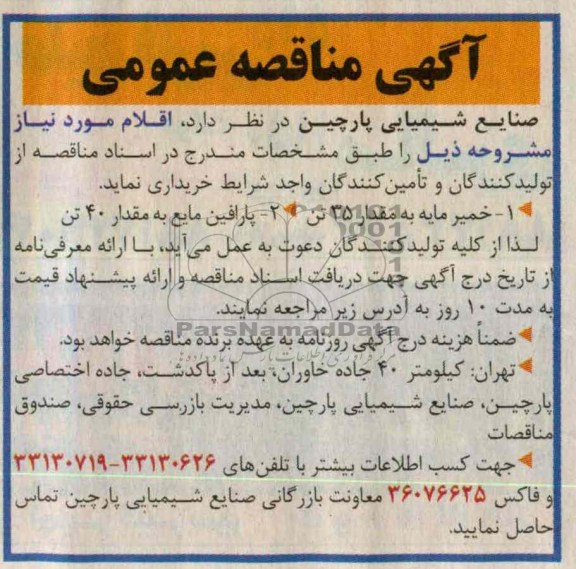 آگهی مناقصه عمومی
صنایع شیمیایی پارچین در نظر دارد، اقلام مورد نیاز
مشروحه ذیل را طبق مشخصات مندرج در اسناد مناقصه از
تولیدکنندگان و تأمین‌کنندگان واجد شرایط خریداری نماید.
۱- خمیر مایه به مقدار ۳۵ تن ۲- پارافین مایع به مقدار ۴۰ تن
لذا از کلیه تولیدکنندگان دعوت به عمل می‌آید، با ارائه معرفی‌نامه
از تاریخ درج آگهی جهت دریافت اسناد مناقصه و ارائه پیشنهاد قیمت
به مدت ۱۰ روز به آدرس زیر مراجعه نمایند.
ParsNamadData
ضمناً هزینه درج آگهی روزنامه به عهده برنده مناقصه خواهد بود.
تهران: کیلومتر ۴۰ جاده خاوران، بعد از پاکدشت، جاده اختصاصی
پارچین، صنایع شیمیایی پارچین، مدیریت بازرسی حقوقی، صندوق
مناقصات
جهت کسب اطلاعات بیشتر با تلفن‌های ۳۳۱۳۰۶۲۶-۳۳۱۳۰۷۱۹
و فاکس ۳۶۰۷۶۶۲۵ معاونت بازرگانی صنایع شیمیایی پارچین تماس
حاصل نمایید.